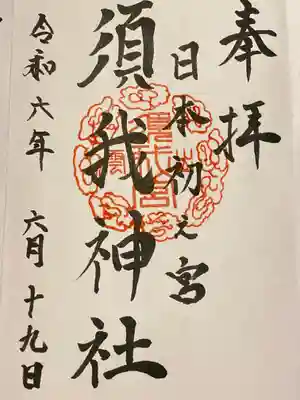 奉拝
日本初之宮
須我神社
令和六年 六月十九日